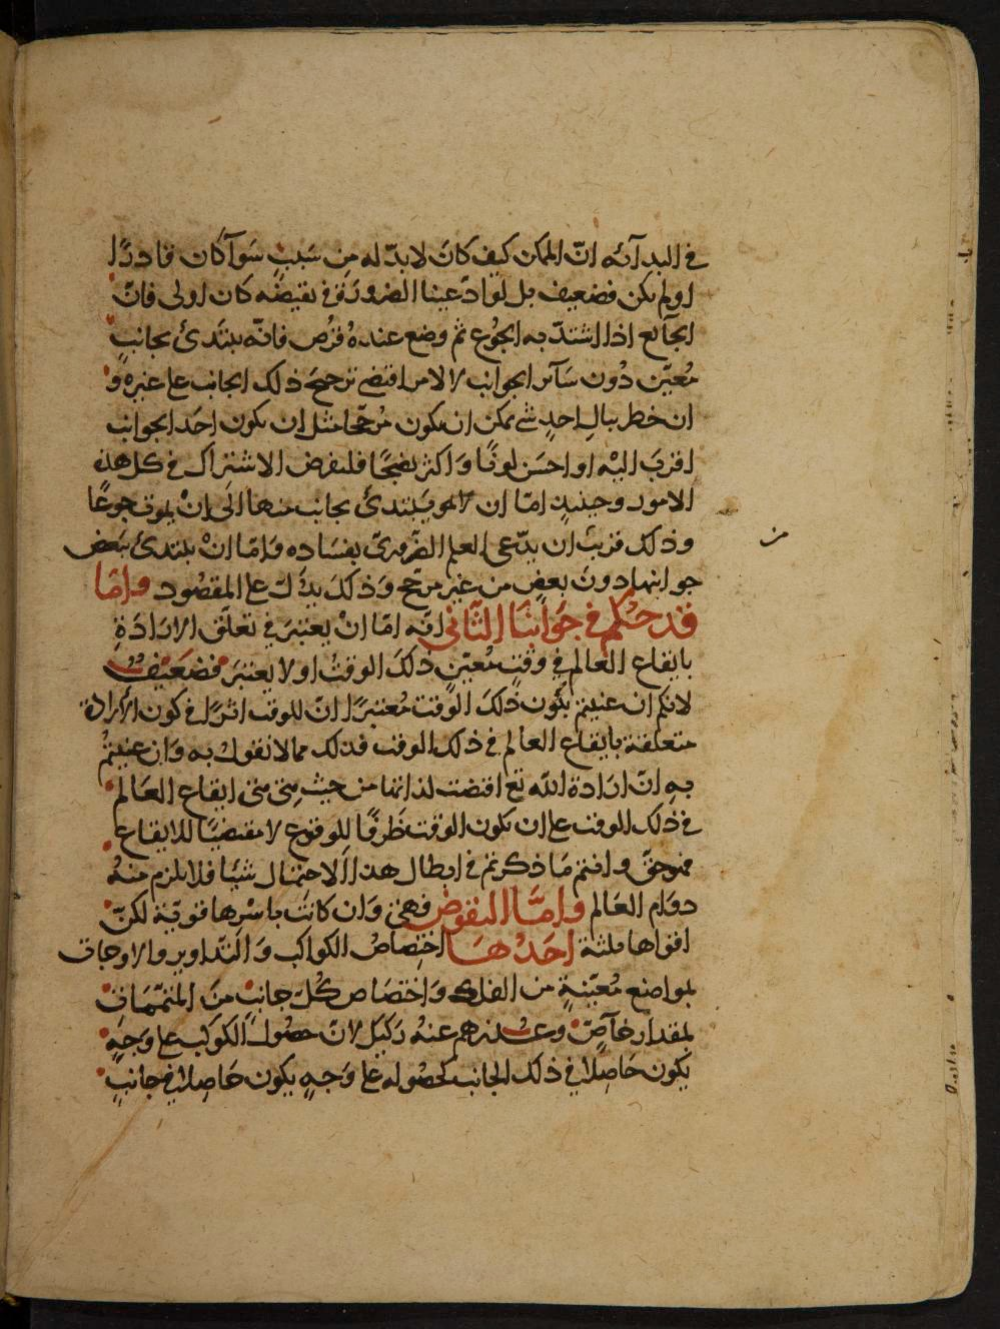 في البدآئه انّ الممكن كيف كانَ لابدّ له مِن سَببٍ سَوآ كان قادرًا
اولم يكن فضعيف بل لو ادّعينا الضرورَة في نقيضه كان اولى فانّ
الجآئع اذا اشتدّ به الجُوع ثم وضع عندهُ قُرص فانّه يبتدئ بجانبٍ
مُعيّن دُون سَآئر الجوانب لا لامر اقتضى ترجحَ ذلك الجانب على غيره وَ
ان خطر ببالِ احدٍ شئ يمكن ان يكون مُرجّحا مثل ان يكون احَد الجوانب
اقربَ اليْه او احسَن لونًا وَ اكثر نضجًا فلنفرض الاشتراك في كل هذه
الامور وحينئذٍ امّا ان لا يَبتدئ بجانب منها الَى انْ يموت جوعًا
وذلك قريبٌ ان يدّعى العلم الضّروريّ بفسَاده وَامّا انْ يبتدئ ببَعض
جوانبها دونَ بعضٍ من غير مرجّح وَذلكَ يدُلّ على المقصُود وامّا
قدحكم في جَوابنا الثّاني انّه امّا انْ يعتبرَ في تعلّق الارَادَةِ
بايقاع العَالم في وقتٍ مُعيّنٍ ذلكَ الوقتُ او لا يعتبرَ فضَعيفٌ
لانكم ان عنيتم بكون ذلكَ الوقت مُعتبرًا انّ للوقت اثرًا في كون الارادة
متعلقة بايقاع العالم في ذلك الوقت فذلك مما لا نقول به وَان عنيتمْ
بهِ انّ ارَادة اللّه تع اقتضت لذاتها من حيث هى هى ايقاع العَالم
في ذلك الوقت على ان يكون الوقت ظرفًا للوقوع لا مقتضيًا للايقاع
فهو حقّ وانتم مَا ذكرتم في ابطال هذا الاحتمال شيئا فلا يلزم منهُ
دوَام العَالم وامّا النقوض فهى وَان كانتْ باسْرها قويّة لكنّ
اقواها ثلثة احَدُهَا اختصَاصُ الكواكب وَالتّداوير والاوجات
بمواضع مُعيّنةٍ من الفلك وَاختصَاص كُلّ جانبٍ منَ المتمّمَات
بمقدار خآصّ وعُذرهم عنهُ رَكيك لانّ حصُولَ الكوكب على وَجهٍ
يكون حَاصِلا في ذلك الجانب كحصُوله على وَجهٍ يكون حَاصِلا في جانبٍ